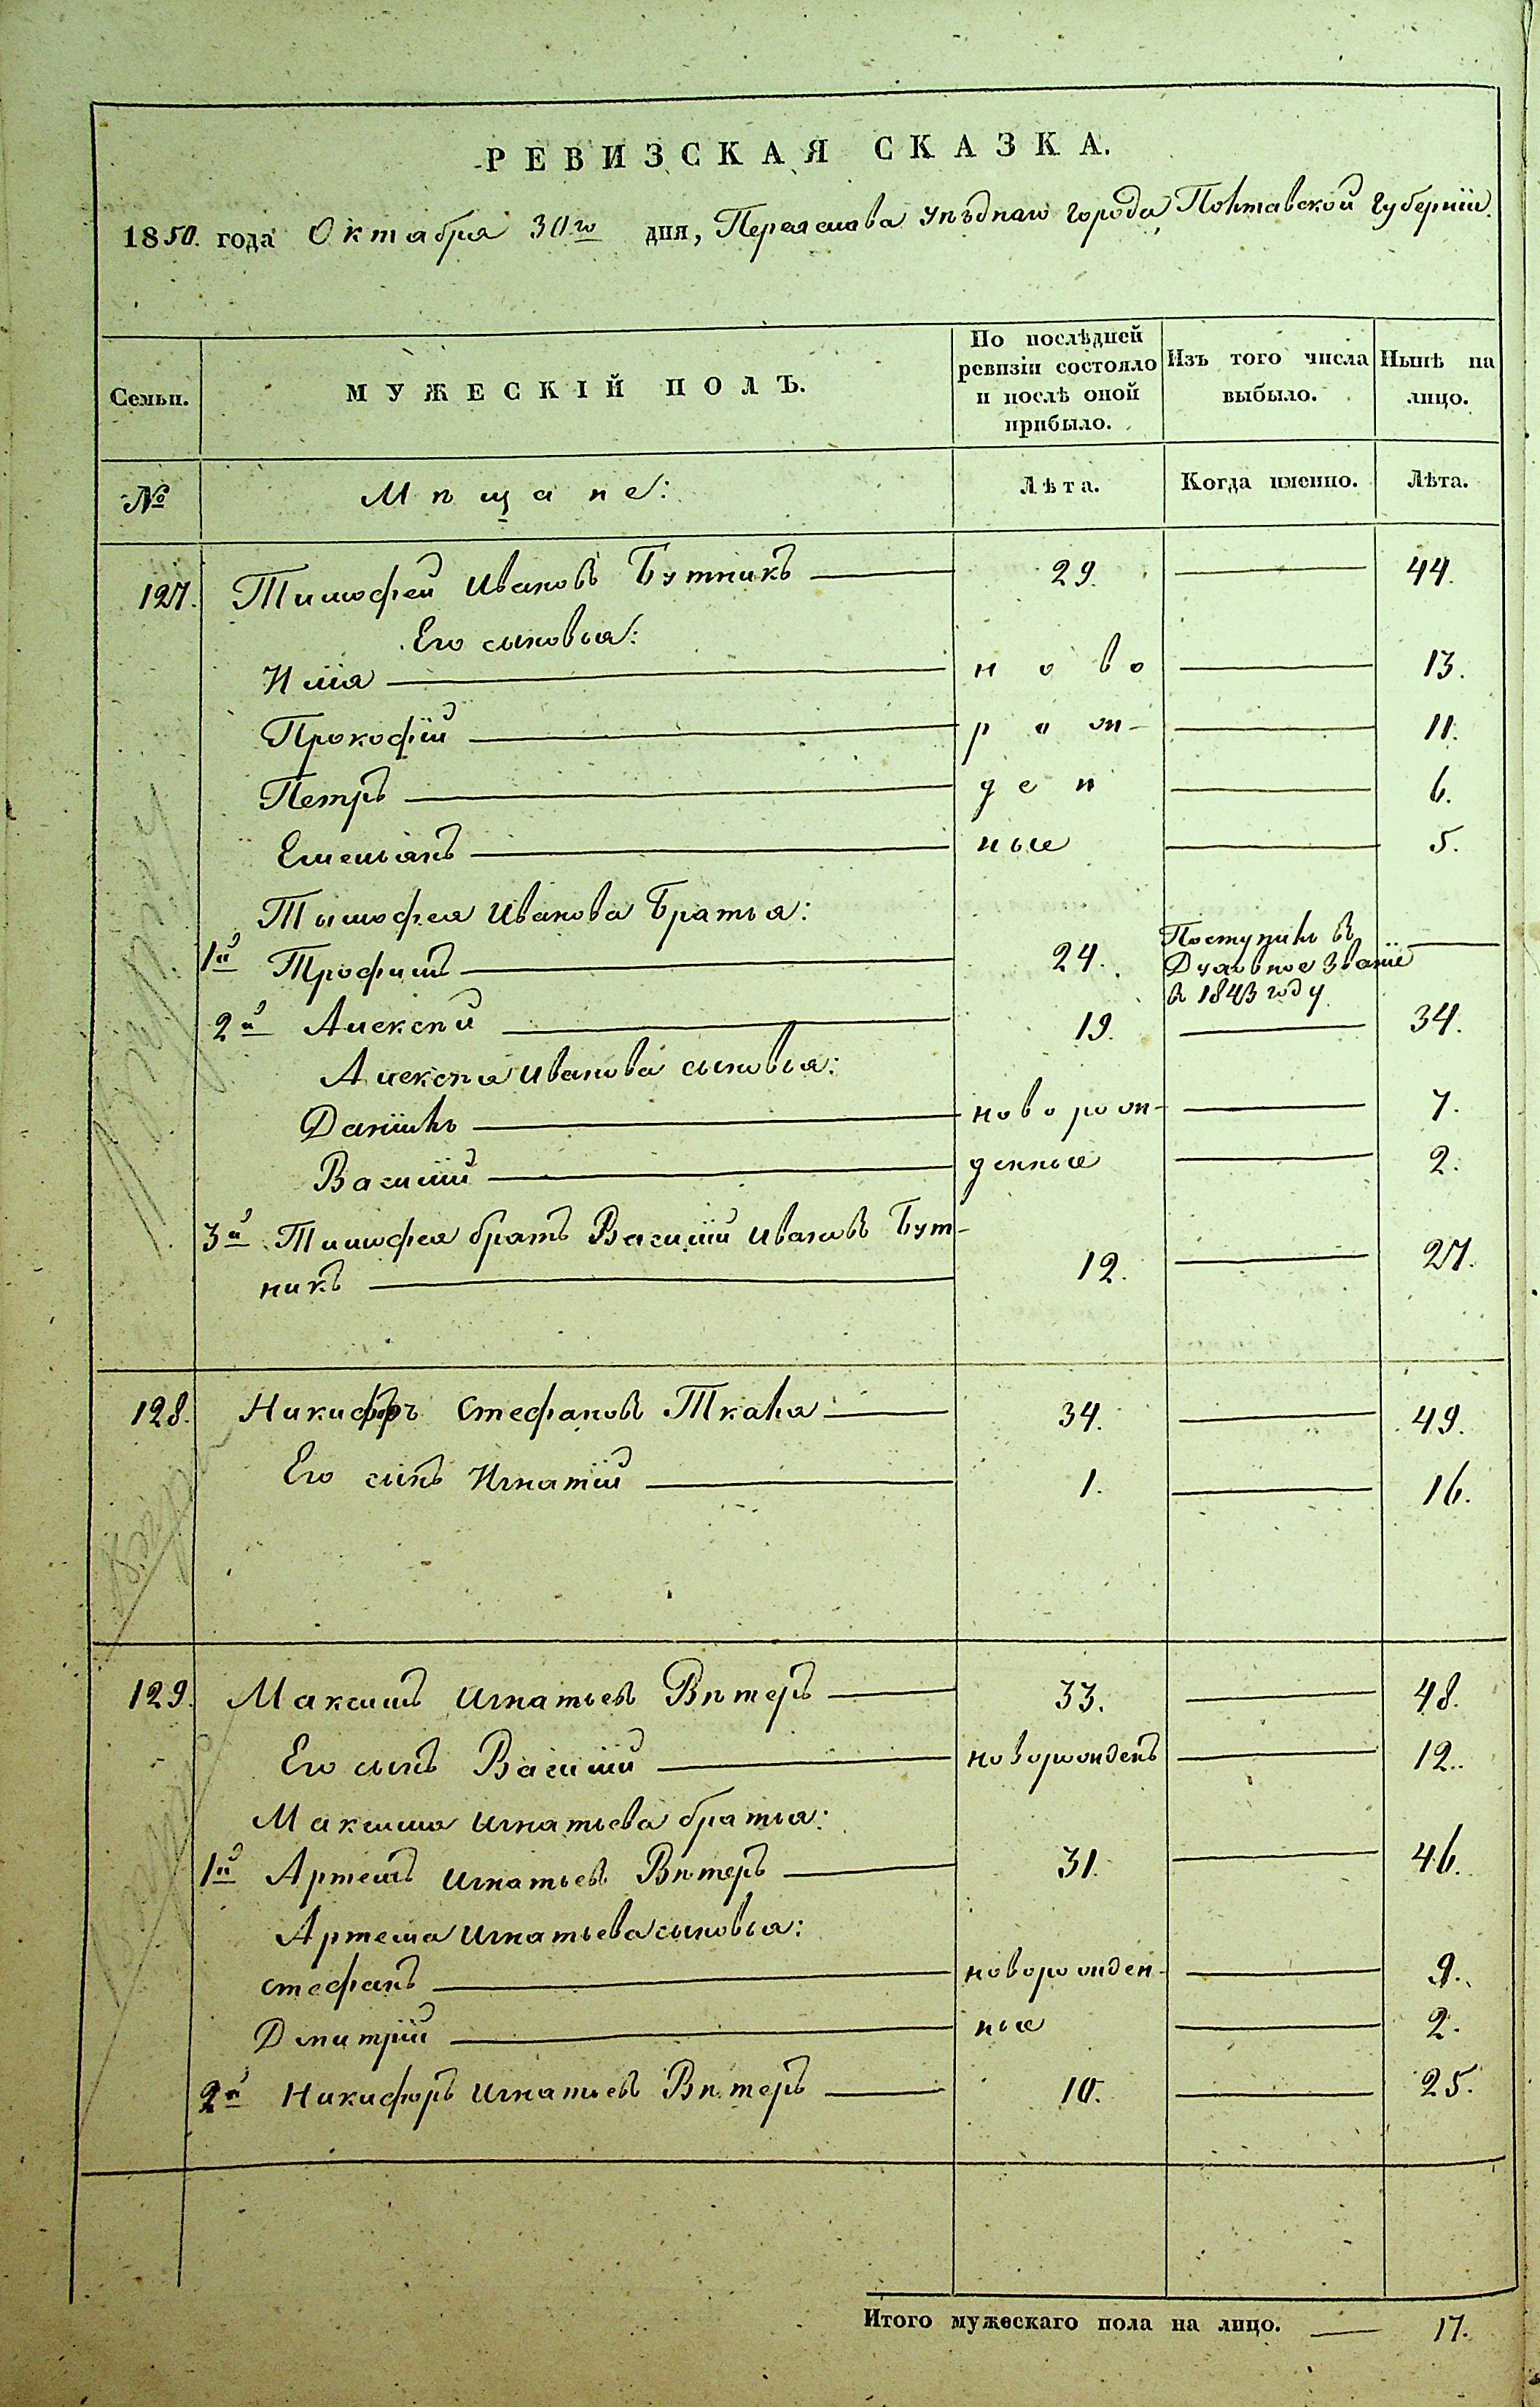 РЕВИЗСКАЯ СКАЗКА.
1850. года Октября 30го дня, Переяслова уѣзднаго города, Полтавской Губерніи.
Семьи. МУЖЕСКІЙ ПОЛЪ. По послѣдней ревизіи состояло и послѣ оной прибыло. Изъ того числа выбыло. Нынѣ на лицо.
№ Мѣщане: Лѣта. Когда именно. Лѣта.
127. Тимофей Ивановъ Бутникъ — 29. — 44.
Его сыновья:
Илія — ново — 13.
Прокофій — рож- — 11.
Петръ — ден — 6.
Емельянъ — ные — 5.
Тымофея Иванова Братья:
1й Трофимъ — 24. Поступилъ въ Духовное Званіе въ 1843 году —
2й Алексѣй — 19. — 34.
Алексѣя Иванова сыновья:
Даніилъ — новорож- — 7.
Василій — денные — 2.
3й Тимофея братъ Василій Ивановъ Бут-
никъ — 12. — 27.
128. Никифоръ Стефановъ Ткаля — 34. — 49.
Его сынъ Игнатій — 1. — 16.
129. Максимъ Игнатьевъ Вѣтеръ — 33. — 48.
Его сынъ Василій — новорожденъ — 12.
Максима Игнатьева братья:
1й Артемъ Игнатьевъ Вѣтеръ — 31. — 46.
Артема Игнатьева сыновья:
Стефанъ — новорожден- — 9.
Дмитрій — ные — 2.
2й Никифоръ Игнатьевъ Вѣтеръ — 10. — 25.
Итого мужескаго пола на лицо. — 17.